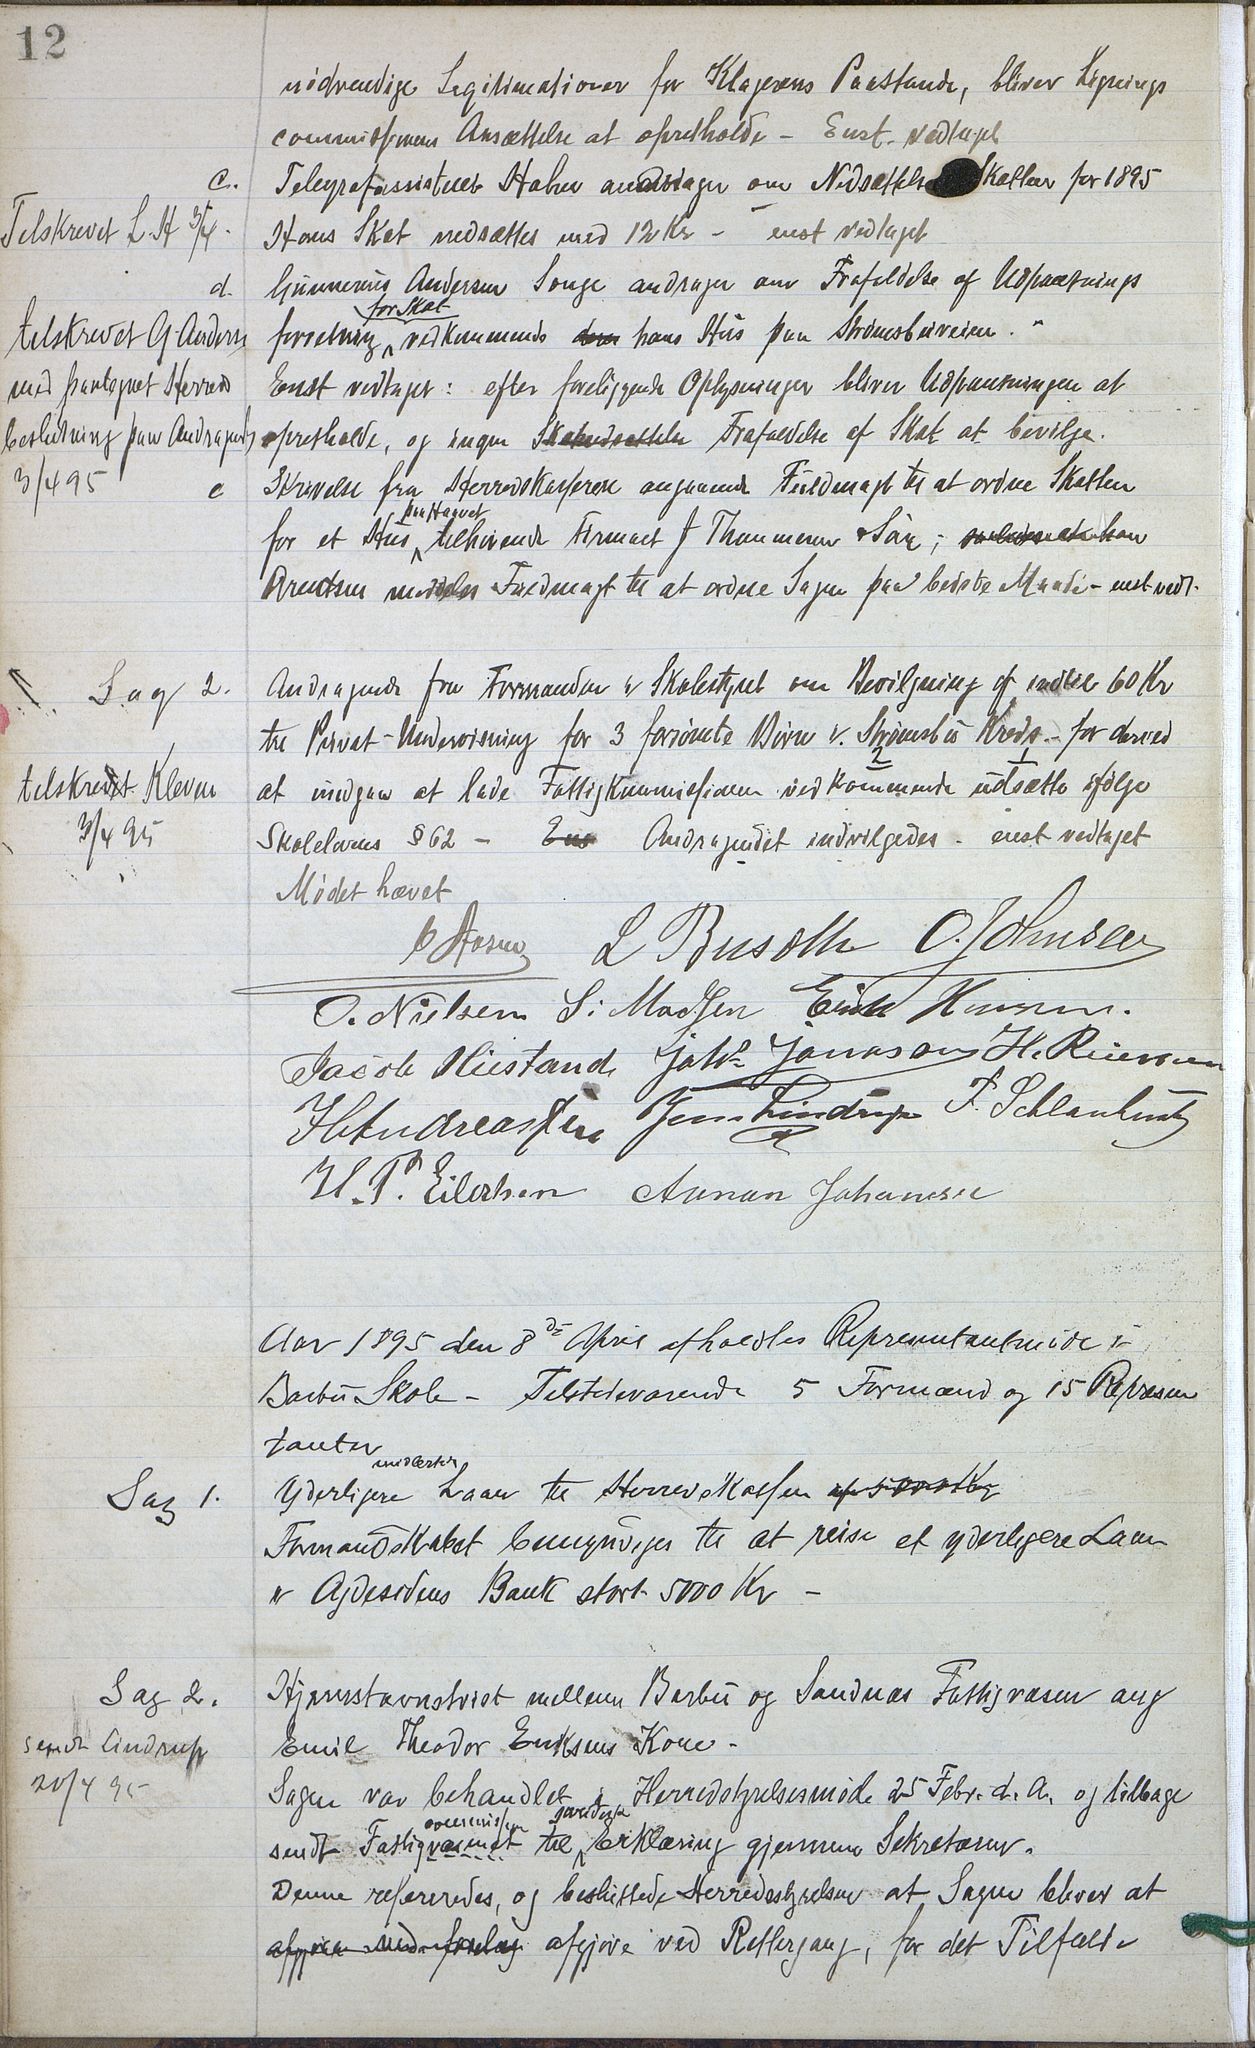 12
nödvendige Legitimationer for Klagerens Paastande, bliver Lignings
commissionens Ansættelse at opretholde – Enst. vedtaget
c. Telegrafassistent Holm andrager om Nedsættelse Skatten for 1895
Tilskrevet L. H 3/4. Hans Skat nedsættes med 12 Kr – enst vedtaget
d. Gunnerius Andersen Songe andrager om Frafaldelse af Udpantnings
for Skat
tilskrevet G Anders forretning vedkommende dem hans Hus paa Strömsbuveien.
med paategnet Herreds Enst vedtaget: efter foreliggende Oplysninger bliver Udpantningen at
beslutning paa Andragend opretholde, og ingen Skatnedsættelse Frafaldelse af Skat at bevilge.
3/4 95 e Skrivelse fra Herredskasserer angaaende Fuldmagt til at ordne Skatten
paa Haavet
for et Hus tilhörende Firmaet J Thommesen & Sön;
Arentsen meddeles Fuldmagt til at ordne Sagen paa bedste Maade – enst vedt.
Sag 2. Andragende fra Formanden i Skolestyret om Bevilgning af indtil 60 Kr
til Privat-Undervisning for 3 forsömte Börn i Strömsbu Kreds – for derved
2 1
tilskrevet Kleven at undgaa at lade Fattigkommissionen vedkommende udsætte ifölge
3/4 95 Skolelovens § 62 – Ens Andragendet indvilgedes. enst vedtaget
Mödet hævet
L Busdth O. Johnsen
O. Nielsen S: Madsen Erik Hansen.
Jacob Hiestand Jak. Jonasson H. Reiersen
H Andreassen Jens Lindrup F. Schlanbusch
H. P. Eilertsen Aanon Johansen
Aar 1895 den 8de April afholdtes Repræsentantmöde i
Barbu Skole – Tilstedeværende 5 Formænd og 15 Repræsen
tanter
midlertid
Sag 1. Yderligere Laan til Herredskassen af 5000 Kr
Formandskabet bemyndiges til at reise et yderligere Laan
i Agdesidens Bank stort 5000 Kr –
Sag 2. Hjemstavnstvist mellem Barbu og Sandnæs Fattigvæsen ang
sendt Lindrup Emil Theodor Eriksens Kone –
20/4 95 Sagen var behandlet i Herredstyrelsesmöde 25 Febr. d. A. og tilbage
commission
sendt Fattigvæsenet til Erklæring gjennem Sekretæren.
Denne refereredes, og besluttede Herredsstyrelsen at Sagen bliver at
afgjöre ved forelæg afgjöre ved Rettergang, for det Tilfælde